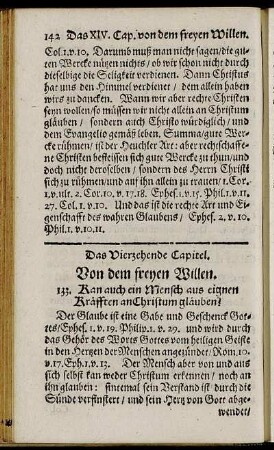 142 Das XIV. Cap. von dem freyen Willen.
Col. 1. v. 10. Darumb muß man nicht sagen / die gu-
ten Wercke nützen nichts / ob wir schon nicht durch
dieselbige die Seligkeit verdienen. Dann Christus
hat uns den Himmel verdienet / dem allein haben
wirs zu dancken. Wann wir aber rechte Christen
seyn wollen / so müssen wir nicht allein an Christum
glauben / sondern auch Christo würdiglich / und
dem Evangelio gemäß leben. Summa / gute Wer-
cke rühmen / ist der Heuchler Art: aber rechtschaffe-
ne Christen befleissen sich gute Wercke zu thun / und
doch nicht deroselben / sondern des Herrn Christi
sich zu rühmen / und auf ihn allein zu trauen / 1. Cor.
1, v. ult. 2. Cor. 10. v. 17. 18. Ephes. 1. v. 15. Phil. 1. v. 11.
27. Col. 1. v. 10. Und das ist die rechte Art und Ei-
genschafft des wahren Glaubens / Ephes. 2. v. 10.
Phil. 1. v. 10. 11.
Das Vierzehende Capitel.
Von dem freyen Willen.
133. Kan auch ein Mensch aus eignen
Kräfften an Christum gläuben?
Der Glaube ist eine Gabe und Geschenck Got-
tes / Ephes. 1. v. 19. Philip. 1. v. 29. und wird durch
das Gehör des Worts Gottes vom heiligen Geiste
in den Hertzen der Menschen angezündet / Rom. 10.
v. 17. Eph. 1. v. 13. Der Mensch aber von und aus
sich selbst kan weder Christum erkennen / noch an
ihn glauben: sintemal sein Verstand ist durch die
Sünde verfinstert / und sein Hertz von Gott abge-
wendet /